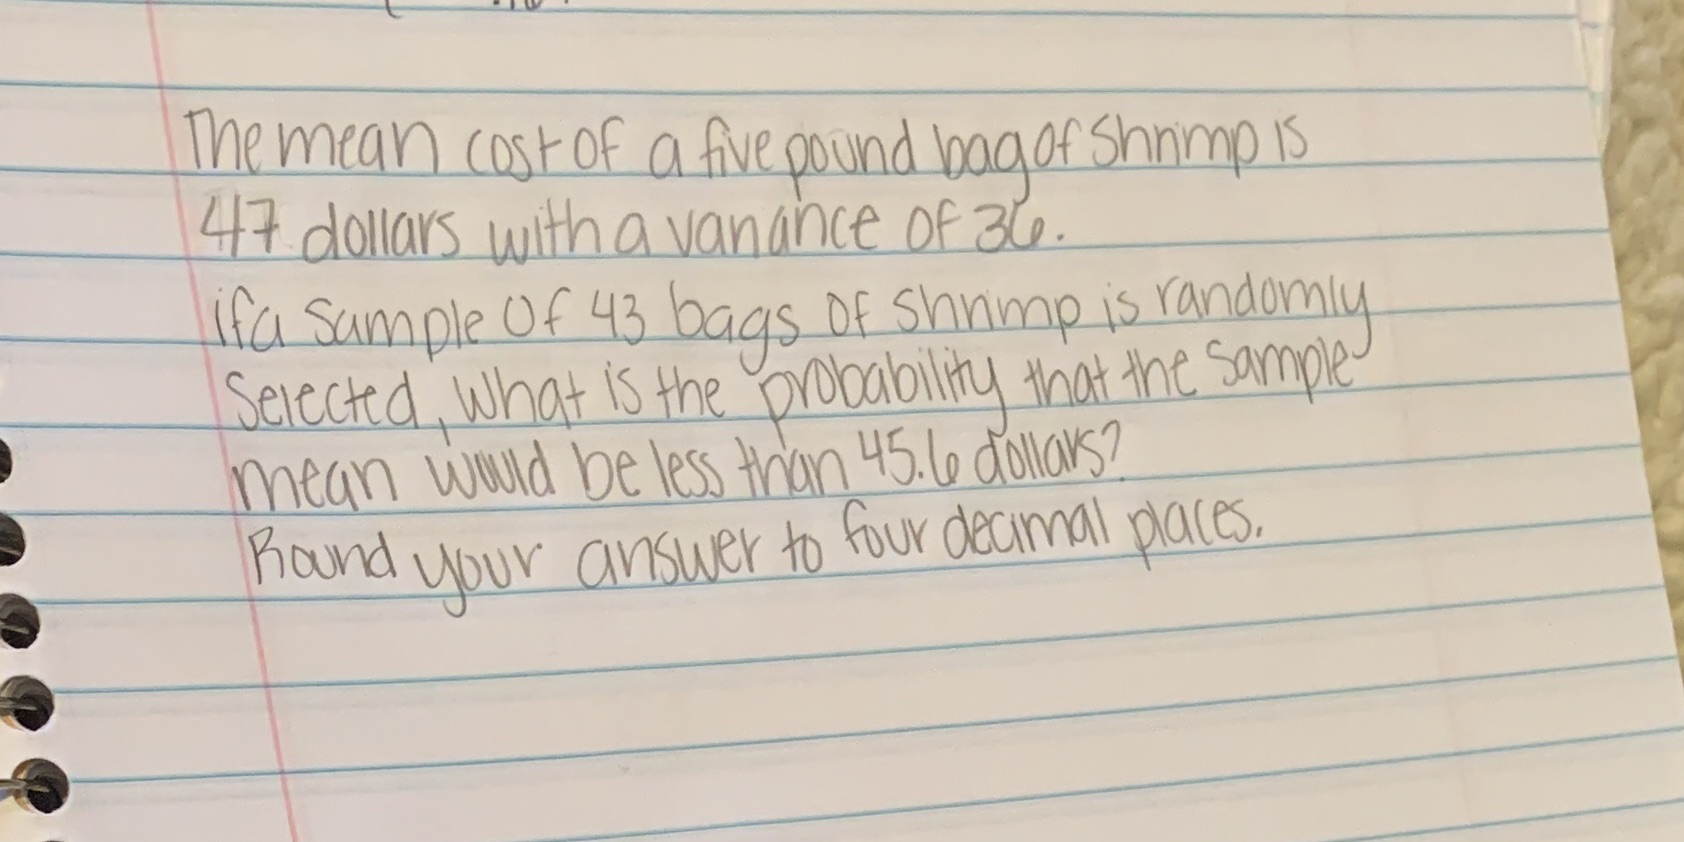 The mean cost of a five pound bag of shrimp is
47 dollars with a variance of 36.
if a sample of 43 bags of shrimp is randomly
selected, what is the probability that the sample
mean would be less than 45.6 dollars?
Round your answer to four decimal places.